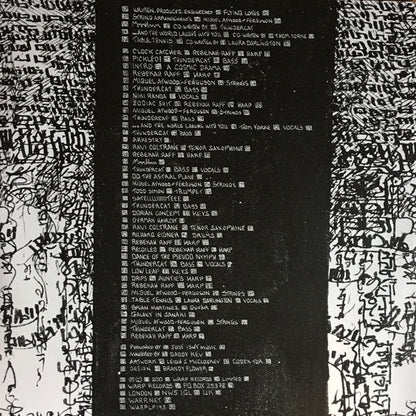 WRITTEN, PRODUCED, ENGINEERED FLYING LOTUS
STRING ARRANGEMENTS MIGUEL ATWOOD-FERGUSON
MmmHmm CO-WRITTEN BY THUNDERCAT
...AND THE WORLD LAUGHS WITH YOU CO-WRITTEN BY THOM YORKE
TABLE TENNIS CO-WRITTEN BY LAURA DARLINGTON
CLOCK CATCHER REBEKAH RAFF HARP
PICKLED! THUNDERCAT BASS
INTRO A COSMIC DRAMA
REBEKAH RAFF HARP
MIGUEL ATWOOD-FERGUSON STRINGS
THUNDERCAT BASS
NIKI RANDA VOCALS
ZODIAC SHIT REBEKAH RAFF HARP
MIGUEL ATWOOD-FERGUSON STRINGS
THUNDERCAT BASS
...AND THE WORLD LAUGHS WITH YOU THOM YORKE VOCALS
THUNDERCAT BASS
ARKESTRY
RAVI COLTRANE TENOR SAXOPHONE
REBEKAH RAFF HARP
MmmHmm
THUNDERCAT BASS VOCALS
DO THE ASTRAL PLANE
MIGUEL ATWOOD-FERGUSON STRINGS
TODD SIMON TRUMPET
SATELLLLIIIIIITEEE
THUNDERCAT BASS
DORIAN CONCEPT KEYS
GERMAN HAIRCUT
RAVI COLTRANE TENOR SAXOPHONE
RICHARD EIGNER DRUMS
REBEKAH RAFF HARP
RECOILED REBEKAH RAFF HARP
DANCE OF THE PSEUDO NYMPH
THUNDERCAT BASS VOCALS
LOW LEAF KEYS
DRIPS AUNTIE'S HARP
REBEKAH RAFF HARP
MIGUEL ATWOOD-FERGUSON STRINGS
TABLE TENNIS LAURA DARLINGTON VOCALS
BRIAN MARTINEZ GUITAR
GALAXY IN JANAKI
MIGUEL ATWOOD-FERGUSON STRINGS
THUNDERCAT BASS
REBEKAH RAFF HARP
PUBLISHED BY JUST ISN'T MUSIC
MASTERED BY DADDY KEV
ARTWORK LEIGH J McCLOSKEY CODEX TOR
DESIGN BRANDY FLOWER
℗ © 2010 WARP RECORDS LIMITED
WARP RECORDS PO BOX 25378
LONDON NW5 1GL UK
WARP.NET
WARPLP195